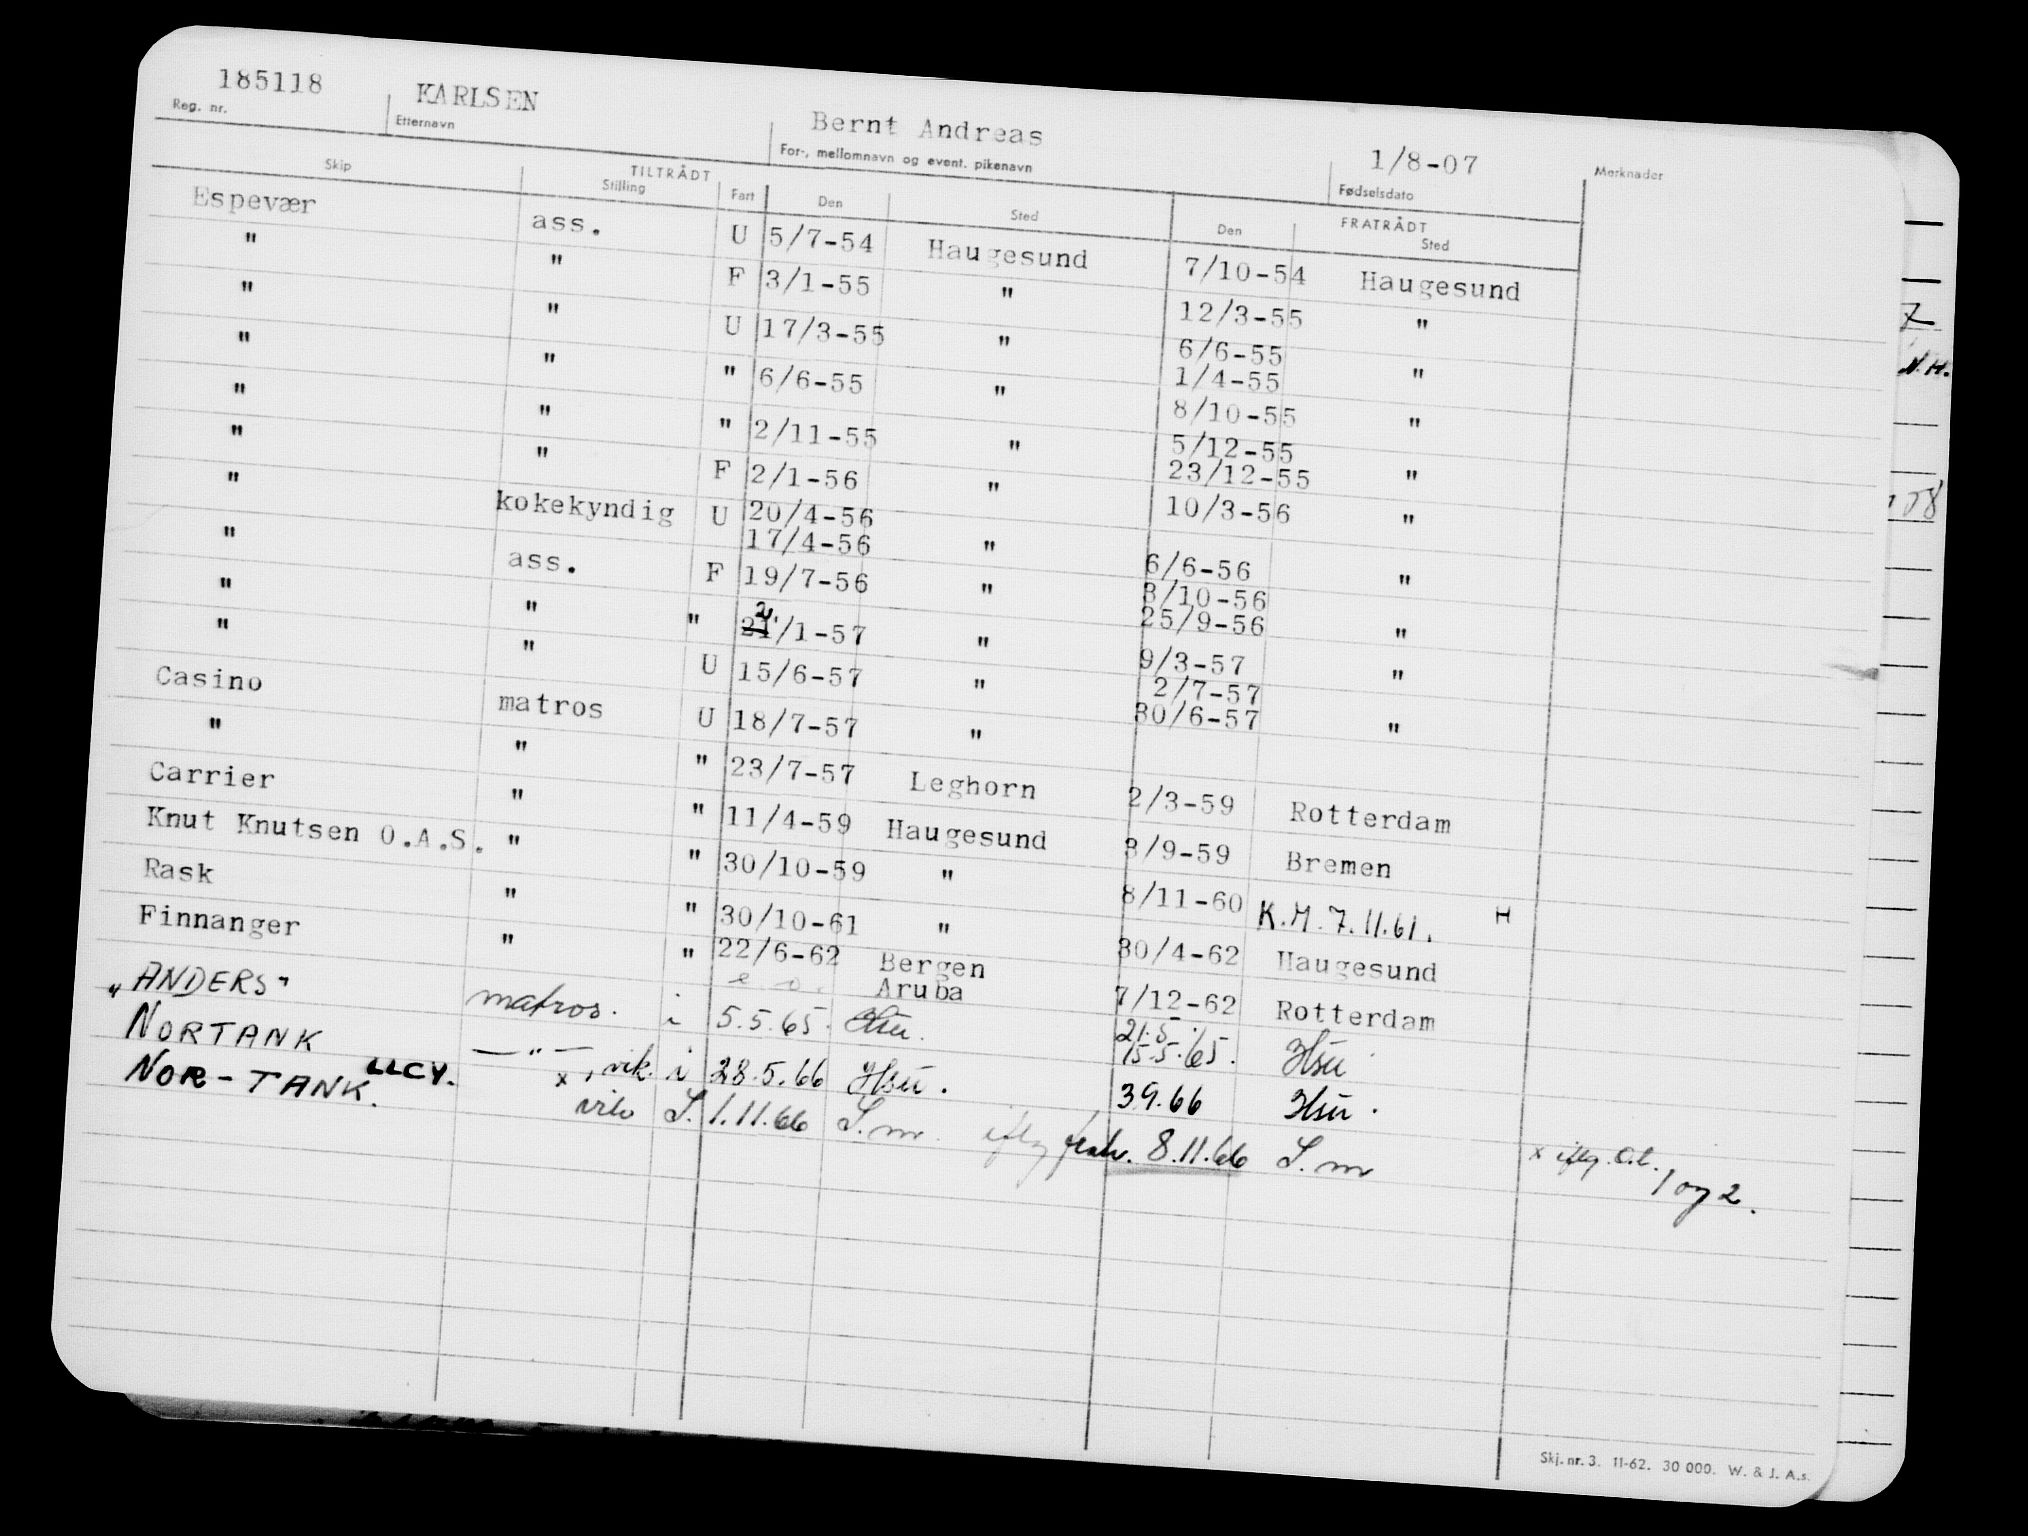 185118 KARLSEN Bernt Andreas 1/8-07
Reg. nr. Etternavn For-, mellomnavn og event. pikenavn Fødselsdato Merknader
TILTRÅDT FRATRÅDT
Skip Stilling Fart Den Sted Den Sted
Espevær ass. U 5/7-54 Haugesund 7/10-54 Haugesund
" " F 3/1-55 " 12/3-55 "
" " U 17/3-55 " 6/6-55 "
1/4-55
" " " 6/6-55 " 8/10-55 "
" " " 2/11-55 " 5/12-55 "
23/12-55
" " F 2/1-56 " 10/3-56 "
" kokekyndig U 20/4-56 " 6/6-56 "
17/4-56
" ass. F 19/7-56 " 3/10-56 "
25/9-56
" " " 2/1-57 " 9/3-57 "
" " U 15/6-57 " 2/7-57 "
30/6-57
Casino matros U 18/7-57 "
" " " 23/7-57 Leghorn 2/3-59 Rotterdam
Carrier " " 11/4-59 Haugesund 3/9-59 Bremen
Knut Knutsen O.A.S. " " 30/10-59 " 8/11-60 K.M. 7.11.61. H
Rask " " 30/10-61 " 30/4-62 Haugesund
Finnanger " " 22/6-62 Bergen 7/12-62 Rotterdam
Aruba
"ANDERS" matros. i 5.5.65. Hsu. 21.5.
15.5.65. Hsu
NORTANK — " — , vik. i 28.5.66 Hsu. 3.9.66 Hsu.
NOR-TANK. LLCY. x vik S. 1.11.66 S.m. iflg fratr. 8.11.66 S.m x iflg. O.l. 1 og 2.
N.H.
Skj. nr. 3. 11-62. 30 000. W. & J. A.s.